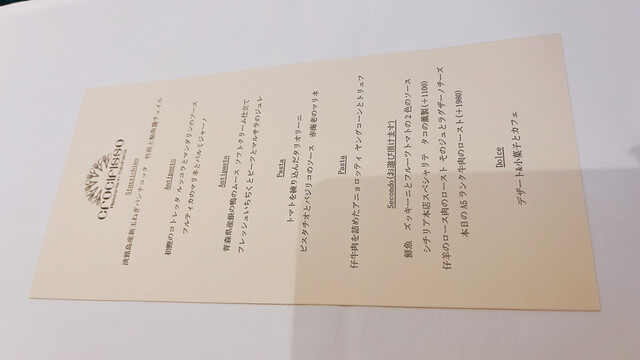 crocifisso
Stuzzichino
淡路島産新玉ねぎパンナコッタ 竹炭と鮎魚醤チュイル
Antipasto
初鰹のコトレッタ ルッコラとマンダリンのソース
プルティカのマリネとパルミジャーノ
Antipasto
青森県産銀の鴨のムース ソフトクリーム仕立て
フレッシュいちぢくとビーツとマルサラのジュレ
Pasta
トマトを練り込んだタリオリーニ
ピスタチオとバジリコのソース 赤海老のマリネ
Pasta
仔牛肉を詰めたアニョロッティ ヤングコーンとトリュフ
Secondo(お選び頂けます)
鮮魚 ズッキーニとフルーツトマトの2色のソース
シチリア本店スペシャリテ タコの燻製(+1100)
仔羊のロース肉のロースト そのジュとラグザーノチーズ
本日のA5ランク牛肉のロースト(+1980)
Dolce
デザート&小菓子とカフェ